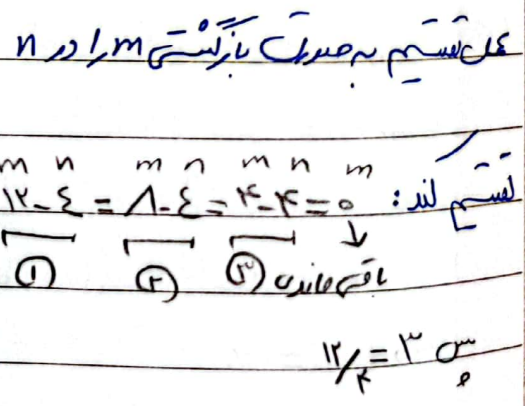 عمل تقسیم به صورت بازگشتی m را در n
تقسیم کند:
m n m n m n m
۱۲-٤ = ۸-٤ = ۴-۴ = ۰
① ② ③ باقی مانده
پس ۱۲/۴ = ۳